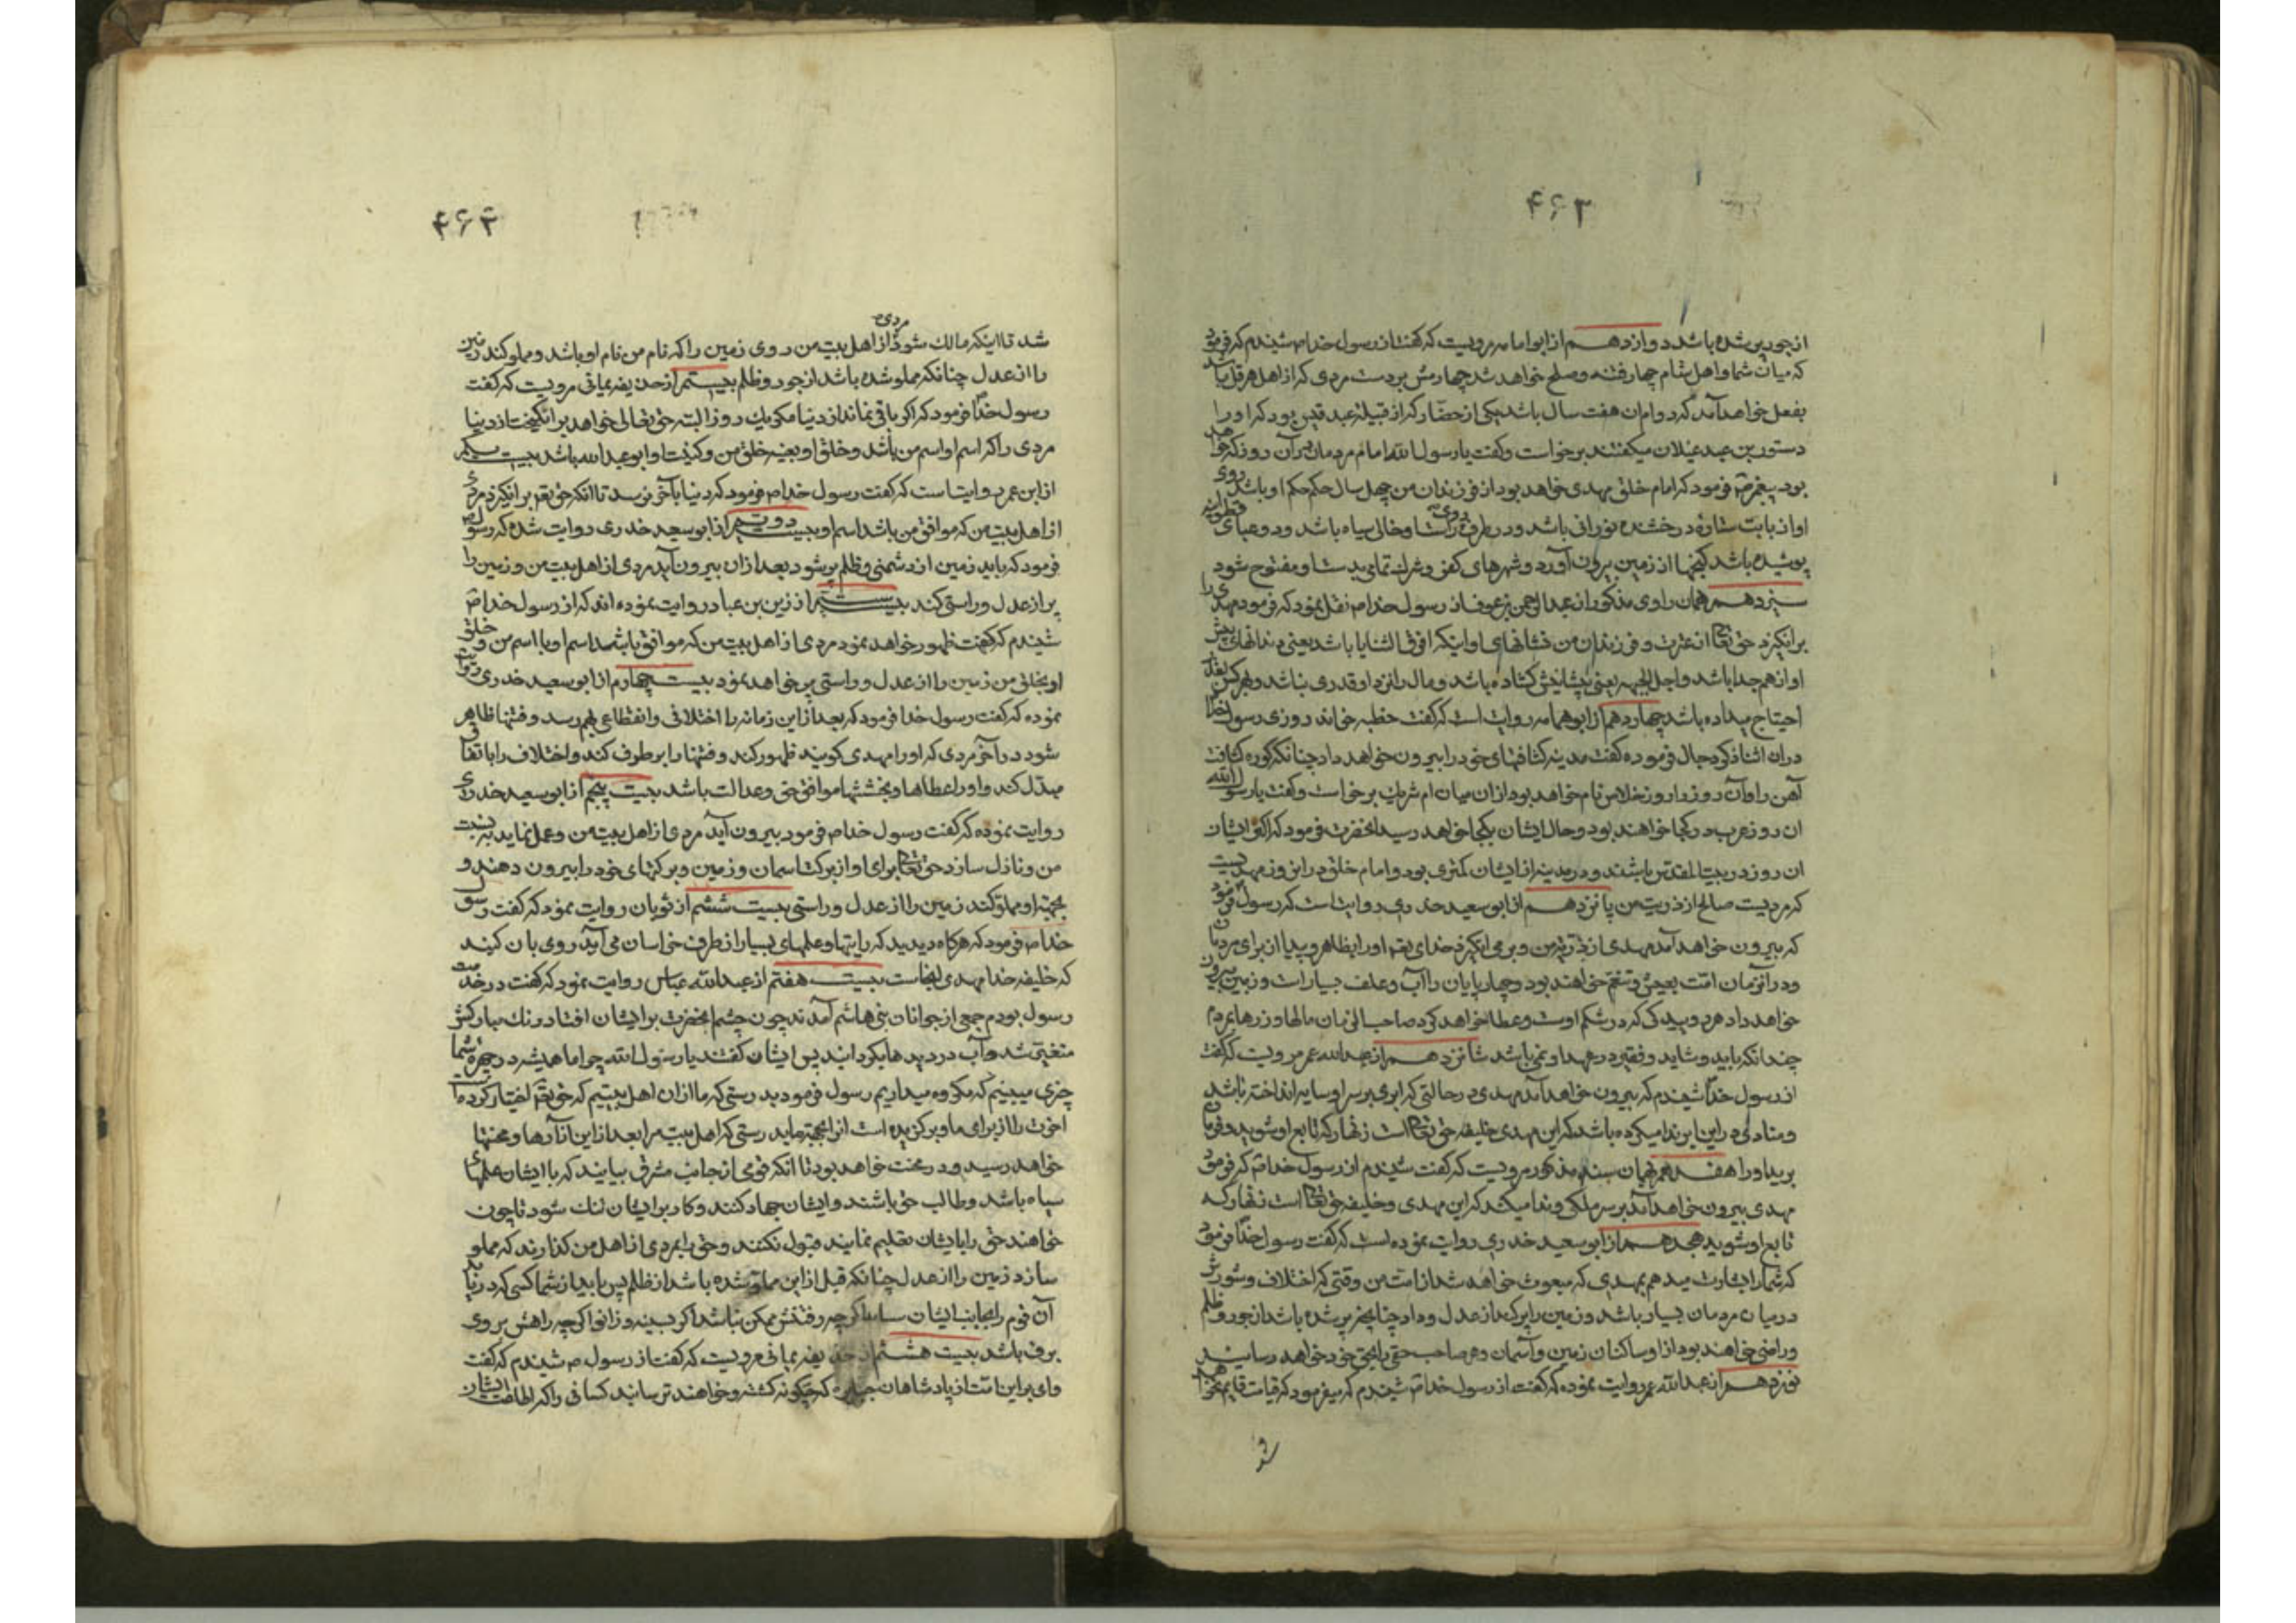 ۴۶۳
از جور پر شده باشد دوازدهم از ابو امامه مرویست که گفت از رسول خدا ص شنیدم که فرمود
که میان شما و اهل شام چهار فتنه و صلح خواهد شد چهارمش بر دست مردی که از اهل هرقل باشد
بفعل خواهد آمد که دوام ان هفت سال باشد یکی از حضار که از قبیلهٔ عبد قیس بود که او را
دستور بن عبد غیلان میگفتند برخواست و گفت یا رسول الله امام مردمان در آن روز که خواهد
بود پیغمبر ص فرمود که امام خلق مهدی خواهد بود از فرزندان من چهل سال حکم حکم او باشد روی
او از بابت ستارهٔ درخشنده نورانی باشد و در طرف روی راستا و خالی سیاه باشد و دو عبای قطوانیه
پوشیده باشد گنجها از زمین بیرون آورد و شهرهای کفر و شرک تمامی بدستا و مفتوح شود
سیزدهم همان راوی مذکور از عبد الرحمن بن عوف از رسول خدا ص نقل نمود که فرمود مهدی را
برانگیزد حق تعا از عترت و فرزندان من نشانهای او اینکه افرق الثنایا باشد یعنی دندانهای پیش
او از هم جدا باشد و اجل الجبهه یعنی پیشانیش گشاده باشد و مال را نزد او قدری نباشد و بهر کس بقدر
احتیاج میداده باشد چهاردهم از ابو همامه روایت است که گفت خطبه خواند روزی رسول خدا
دران اثنا ذکر دجال فرموده گفت مدینه کثافتهای خود را بیرون خواهد داد چنانکه کوره کثافت
آهن را و آن روز را روز خلاص نام خواهد بود ازان میان ام شریک برخواست و گفت یا رسول الله
ان روز عرب در کجا خواهند بود و حال ایشان بکجا خواهد رسید انحضرت فرمود که اکثر ایشان
ان روز در بیت المقدس باشند و در مدینه از ایشان کمتری بود و امام خلق در این روز مهدیست
که مردیست صالح از ذریت من پانزدهم از ابو سعید خدری روایت است که رسول ص فرمود
که بیرون خواهد آمد مهدی از ذریهٔ من و بر می انگیزد خدای تعم او را بظاهر و پیدا از برای مردمان
و در آنزمان امت بعیش و تنعم خواهند بود و چهارپایان را آب و علف بسیار است و زمین بیرون
خواهد داد هر روییدگی که در شکم اوست و عطا خواهد کرد صاحب الزمان مالها و زرها بمردم
چندانکه باید و شاید و فقیر در عهد او نمی باشد شانزدهم از عبد الله عمر مرویست که گفت
از رسول خدا شنیدم که بیرون خواهد آمد مهدی در حالتی که ابری بر سر او سایه انداخته باشد
و منادی در این ابر ندا میکرده باشد که این مهدی خلیفه حق تعا است زنهار که تابع او شوید و فرمان
برید او را هفدهم بهمان سند مذکور مرویست که گفت شنیدم از رسول خدا ص که فرمود
مهدی بیرون خواهد آمد بر سر ملکی و ندا میکند که این مهدی و خلیفه حق تعا است زنهار که
تابع او شوید هجدهم از ابو سعید خدری روایت نموده است که گفت رسول خدا فرمود
که شما را بشارت میدهم بمهدی که مبعوث خواهد شد از امت من وقتی که اختلاف و شورش
در میان مردمان بسیار باشد و زمین را پر کند از عدل و داد چنانچه پر شده باشد از جور و ظلم
و راضی خواهند بود از او ساکنان زمین و آسمان و هر صاحب حقی را بحق خود خواهد رسانید
نوزدهم از عبد الله عمر روایت نموده که گفت از رسول خدا ص شنیدم که میفرمود که قیامت قایم نخواهد
شد
۴۶۴
شد تا اینکه مالک شود مردی از اهل بیت من روی زمین را که نام من نام او باشد و مملو کند زمین
را از عدل چنانکه مملو شده باشد از جور و ظلم بیستم از حذیفه یمانی مرویست که گفت
رسول خدا فرمود که اگر باقی نماند از دنیا مگر یک روز البته حق تعالی خواهد برانگیخت از دنیا
مردی را که اسم او اسم من باشد و خلق او بعینه خلق من و کنیت او ابو عبد الله باشد بیست یکم
از ابن عمر روایتست که گفت رسول خدا ص فرمود که دنیا بآخر نرسد تا انکه حق تعم برانگیزد مردی
از اهل بیت من که موافق من باشد اسم او بیست دویم از ابو سعید خدری روایت شده که رسول ص
فرمود که باید زمین از دشمنی و ظلم پر شود بعد ازان بیرون آید مردی از اهل بیت من و زمین را
پر از عدل و راستی کند بیست سیم از زرین بن عباد روایت نموده اند که از رسول خدا ص
شنیدم که گفت ظهور خواهد نمود مردی از اهل بیت من که موافق باشد اسم او با اسم من و خلق
او بخلق من زمین را از عدل و راستی پر خواهد نمود بیست چهارم از ابو سعید خدری روایت
نموده که گفت رسول خدا فرمود که بعد از این زمانه را اختلافی و انقطاعی بهم رسد و فتنها ظاهر
شود در آخر مردی که او را مهدی گویند ظهور کند و فتنها را برطرف کند و اختلاف را باتفاق
مبدل کند و او را عطاها و بخششها موافق حق و عدالت باشد بیست پنجم از ابو سعید خدری
روایت نموده که گفت رسول خدا ص فرمود بیرون آید مردی از اهل بیت من و عمل نماید بسنت
من و نازل سازد حق تعا برای او از برکتا سمان و زمین و برکتهای خود را بیرون دهند و
بجهة او مملو کند زمین را از عدل و راستی بیست ششم از ثوبان روایت نمود که گفت رسول
خدا ص فرمود که هرگاه دیدید که رایتها و علمهای بسیار از طرف خراسان می آید روی بان کنید
که خلیفه خدا مهدی انجاست بیست هفتم از عبد الله عباس روایت نمود که گفت در خدمت
رسول بودم جمعی از جوانان بنی هاشم آمدند چون چشم انحضرت بر ایشان افتاد رنک مبارکش
متغیر شد و آب در دیدها بگردانید پس ایشان گفتند یا رسول الله چرا ما همیشه در چهره شما
چیزی میبینیم که مکروه میداریم رسول فرمود بدرستی که ما ازان اهل بیتیم که حق تعم اختیار کرده است
اخرت را از برای ما و برگزیده است از اینجهة ما بدرستی که اهل بیت مرا بعد از این آزارها و محنتها
خواهد رسید و در محنت خواهد بود تا انکه قومی از جانب مشرق بیایند که با ایشان علمهای
سیاه باشد و طالب حق باشند و ایشان جهاد کنند و کار بر ایشان تنک شود تا چون
خواهند حق را بایشان تقلیم نمایند قبول نکنند و حق را بمردی از اهل من گذارند که مملو
سازد زمین را از عدل چنانکه قبل از این مملو شده باشد از ظلم پس باید از شما کسی که دریابد
آن قوم را بجانب ایشان اگرچه رفتنش ممکن نباشد اگر بسینه و زانو اگرچه راهش بر روی
برف باشد بیست هشتم از حذیفه یمانی مرویست که گفت از رسول ص شنیدم که گفت
وای بر این امت از پادشاهان جبابره که چگونه کشته و خواهند ترسانید کسانی را که اطاعت ایشان